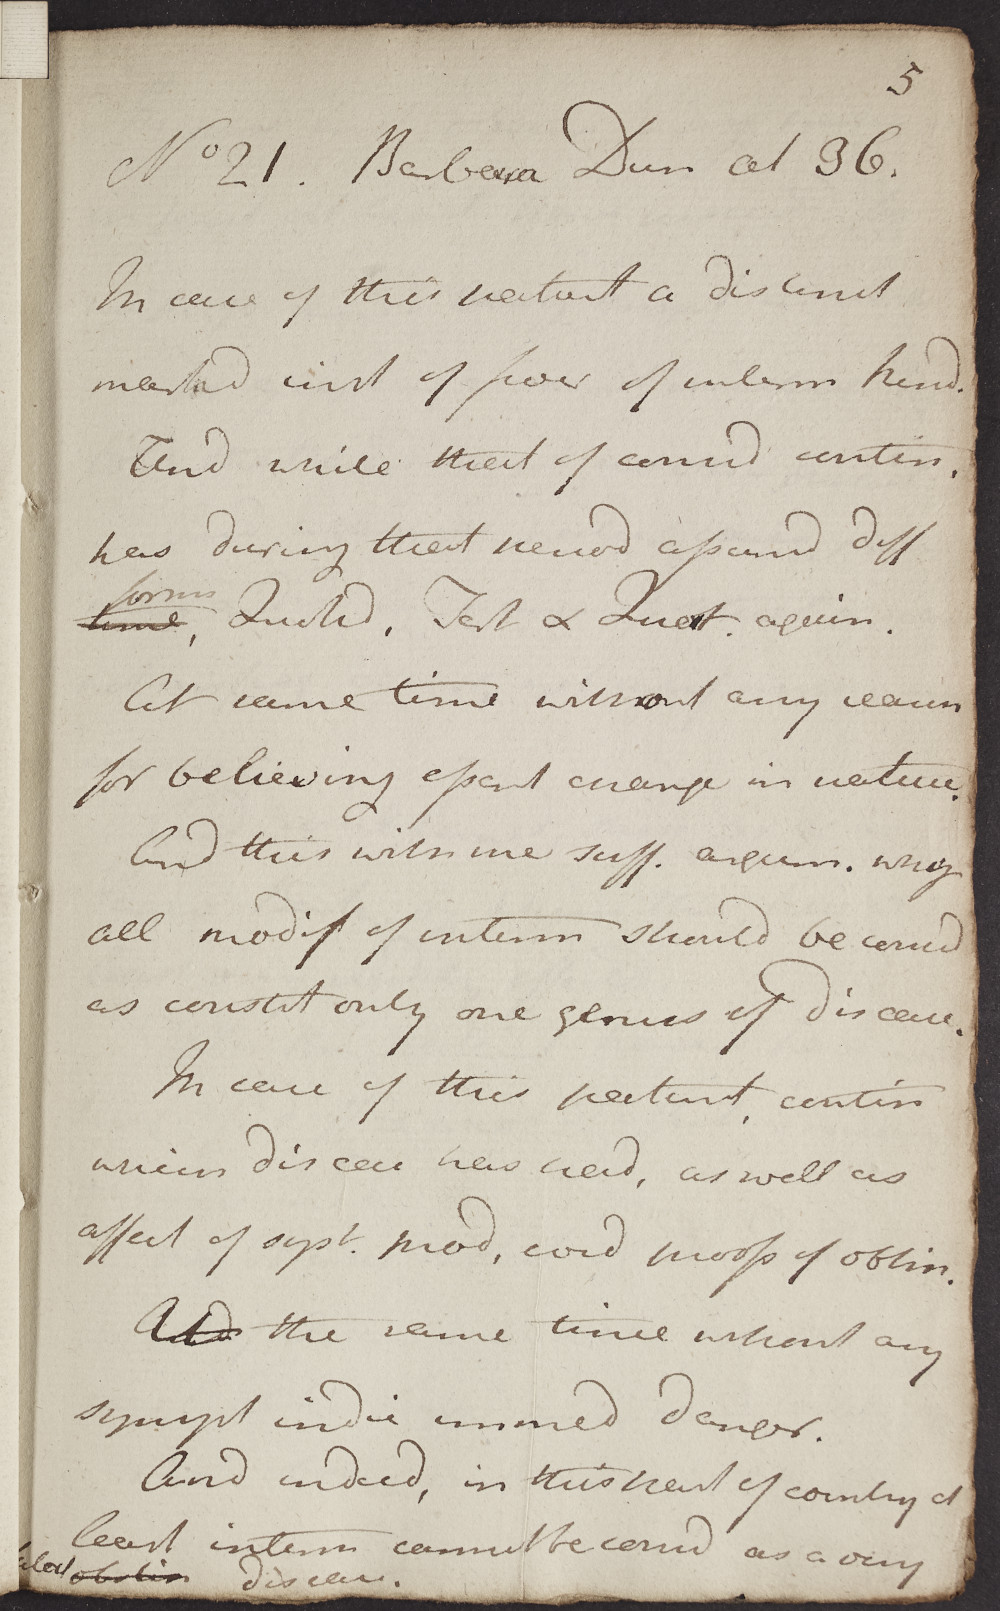 5
No 21. Barbara Dun aet 36.
In case of this patient a distinct
marked inst of fever of interm kind.
And while that of cained contin.
has during that period assumd diff
forms
time, Quotid, Tert & Quart. again.
At same time without any reason
for believing essent change in nature.
And this with me suff. argum. why
all modif of interm should be consid
as constit only one genus of disease.
In case of this patient, contin
which disease has had, as well as
affect of sypt. prod, consid proofs of obstin.
And the same time without any
sympt indic immed danger.
And indeed, in this part of country at
least interm cannot be consid as a very
fatal obstin disease.